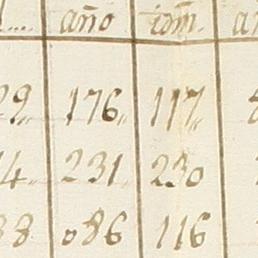 año idm̃.
29,, 176,, 117,,
14 231 230
38 086 116